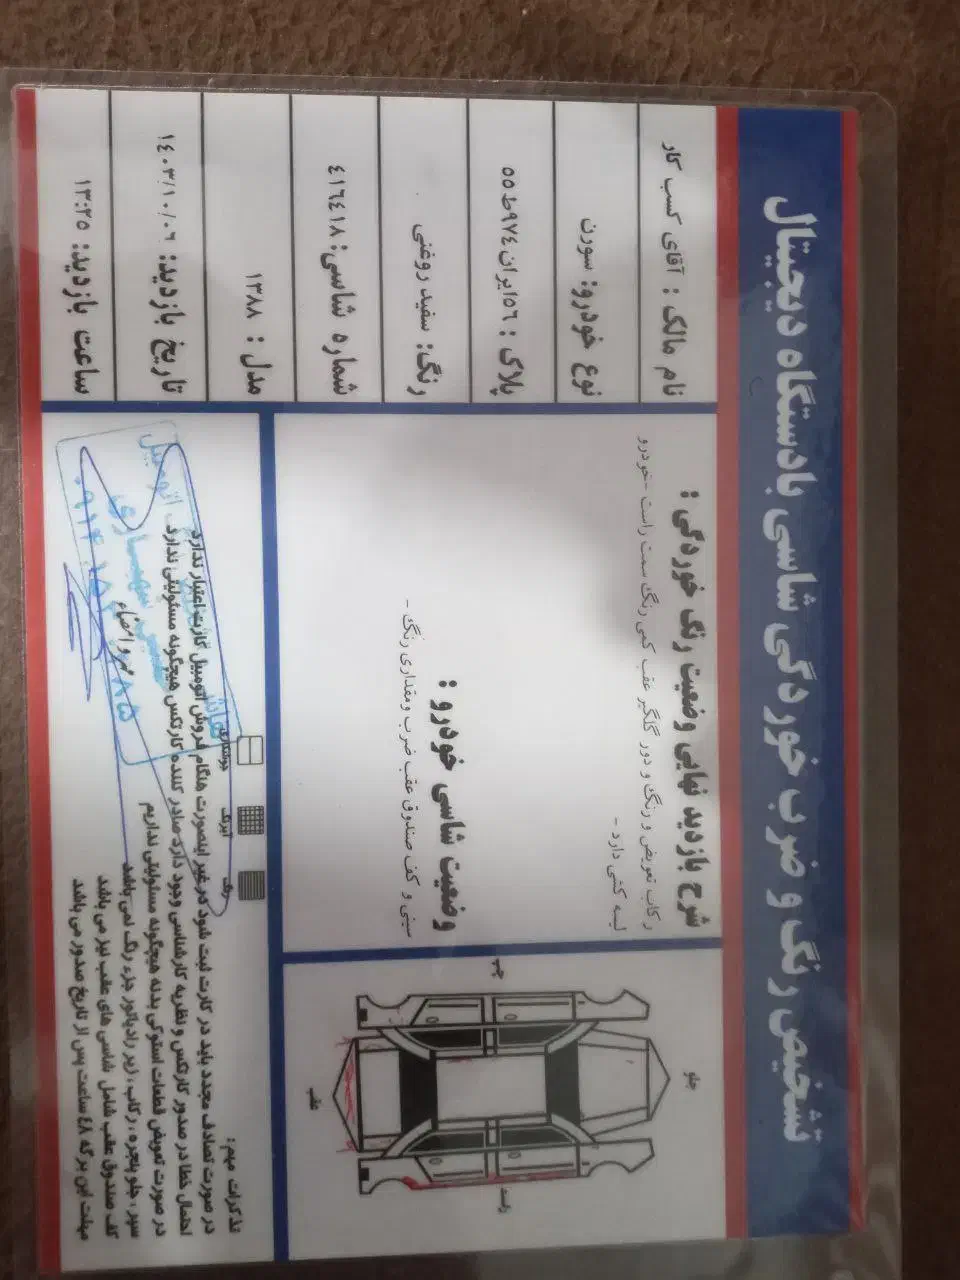 تشخیص رنگ و ضرب خوردگی شاسی بادستگاه دیجیتال
نام مالک : آقای کسب کار
نوع خودرو: سورن
پلاک : ٥٦ایران٩٧٤ط٥٥
رنگ: سفید روغنی
شماره شاسی: ٤١٦٤١٨
مدل : ١٣٨٨
تاریخ بازدید: ١٤٠٣/١٠/٠٦
ساعت بازدید: ١٣:٣٥
شرح بازدید نهایی وضعیت رنگ خوردگی :
رکاب تعویض و رنگ و دور گلگیر عقب کمی رنگ سمت راست -خودرو
لیسه کشی دارد -
وضعیت شاسی خودرو :
سینی و کف صندوق عقب ضرب ومقداری رنگ -
چپ
جلو
عقب
راست
رنگ
آبرنگ
دوبارنگ
تذکرات مهم:
در صورت تصادف مجدد باید در کارت ثبت شود در غیر اینصورت هنگام فروش اتومبیل کارت اعتبار ندارد
احتمال خطا در صدور کارتکس و نظریه کارشناسی وجود دارد صادر کننده کارتکس هیچگونه مسئولیتی ندارد
در صورت تعویض قطعات استوکی بدنه هیچگونه مسئولیتی نداریم
سپر ، جلو پنجره ، رکاب ، زیر رادیاتور جزء رنگ نمی باشد
کف صندوق عقب شامل شاسی های عقب نیز می باشد
مهلت این برگه ٤٨ ساعت پس از تاریخ صدور می باشد
مهر و امضاء